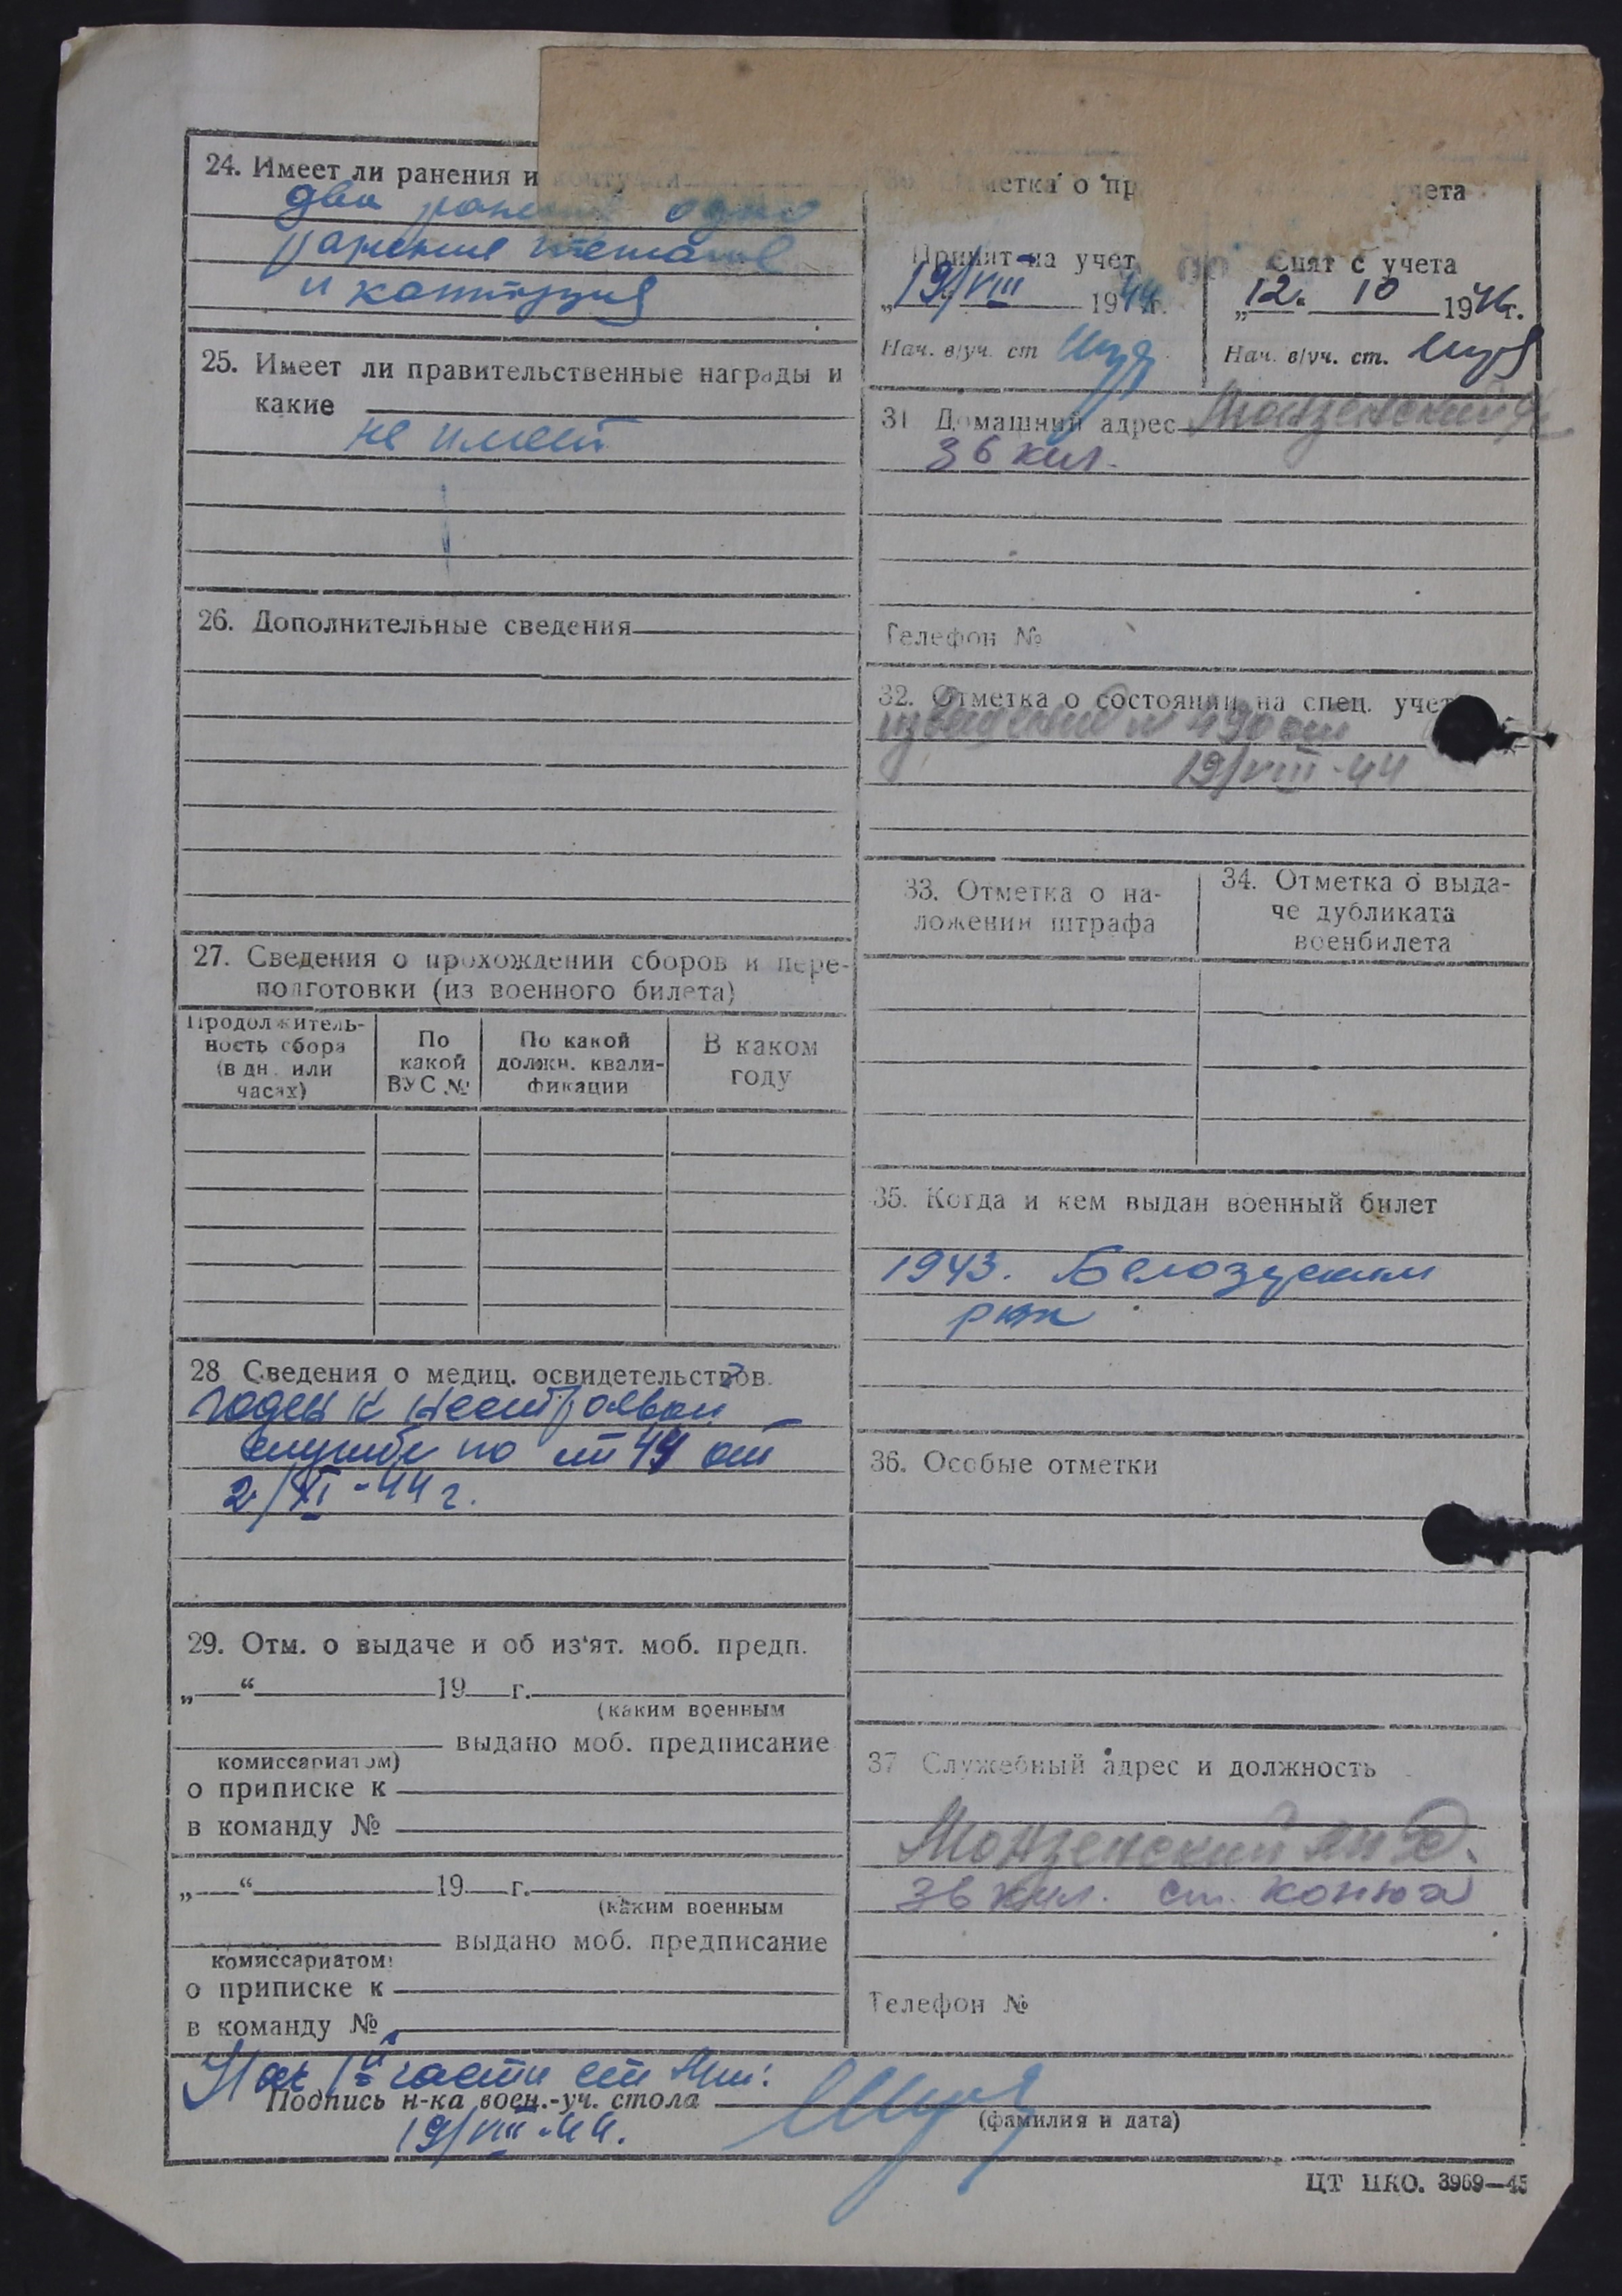 24. Имеет ли ранения и контузии
два ранения одно
ранение
и контузия
25. Имеет ли правительственные награды и
какие
не имеет
26. Дополнительные сведения
27. Сведения о прохождении сборов и пере-
подготовки (из военного билета)
Продолжитель-
ность сбора
(в дн. или
часах)
По
какой
ВУС №
По какой
должн. квали-
фикации
В каком
году
28 Сведения о медиц. освидетельствов.
годен к нестроевой
службе по ст 44 от
2/XI-44 г.
29. Отм. о выдаче и об из'ят. моб. предп.
„ “ 19 г.
(каким военным
выдано моб. предписание
комиссариатом)
о приписке к
в команду №
„ “ 19 г.
(каким военным
выдано моб. предписание
комиссариатом)
о приписке к
в команду №
метка о пр учета
Принят на учет
„19/VIII 1944г.
Нач. в/уч. ст
Снят с учета
„12. 10 1946г.
Нач. в/уч. ст.
31 Домашний адрес Монзенский
36 кил.
Телефон №
32. Отметка о состоянии на спец. учет
извещение № 490 от
19/VIII-44
33. Отметка о на-
ложении штрафа
34. Отметка о выда-
че дубликата
военбилета
35. Когда и кем выдан военный билет
1943. Белозерским
рвк
36. Особые отметки
37 Служебный адрес и должность
Монзенский
36 кил. ст. конюх
Телефон №
Нач 1й части
Подпись н-ка воен.-уч. стола
(фамилия и дата)
19/VIII-44.
ЦТ НКО. 3969—45